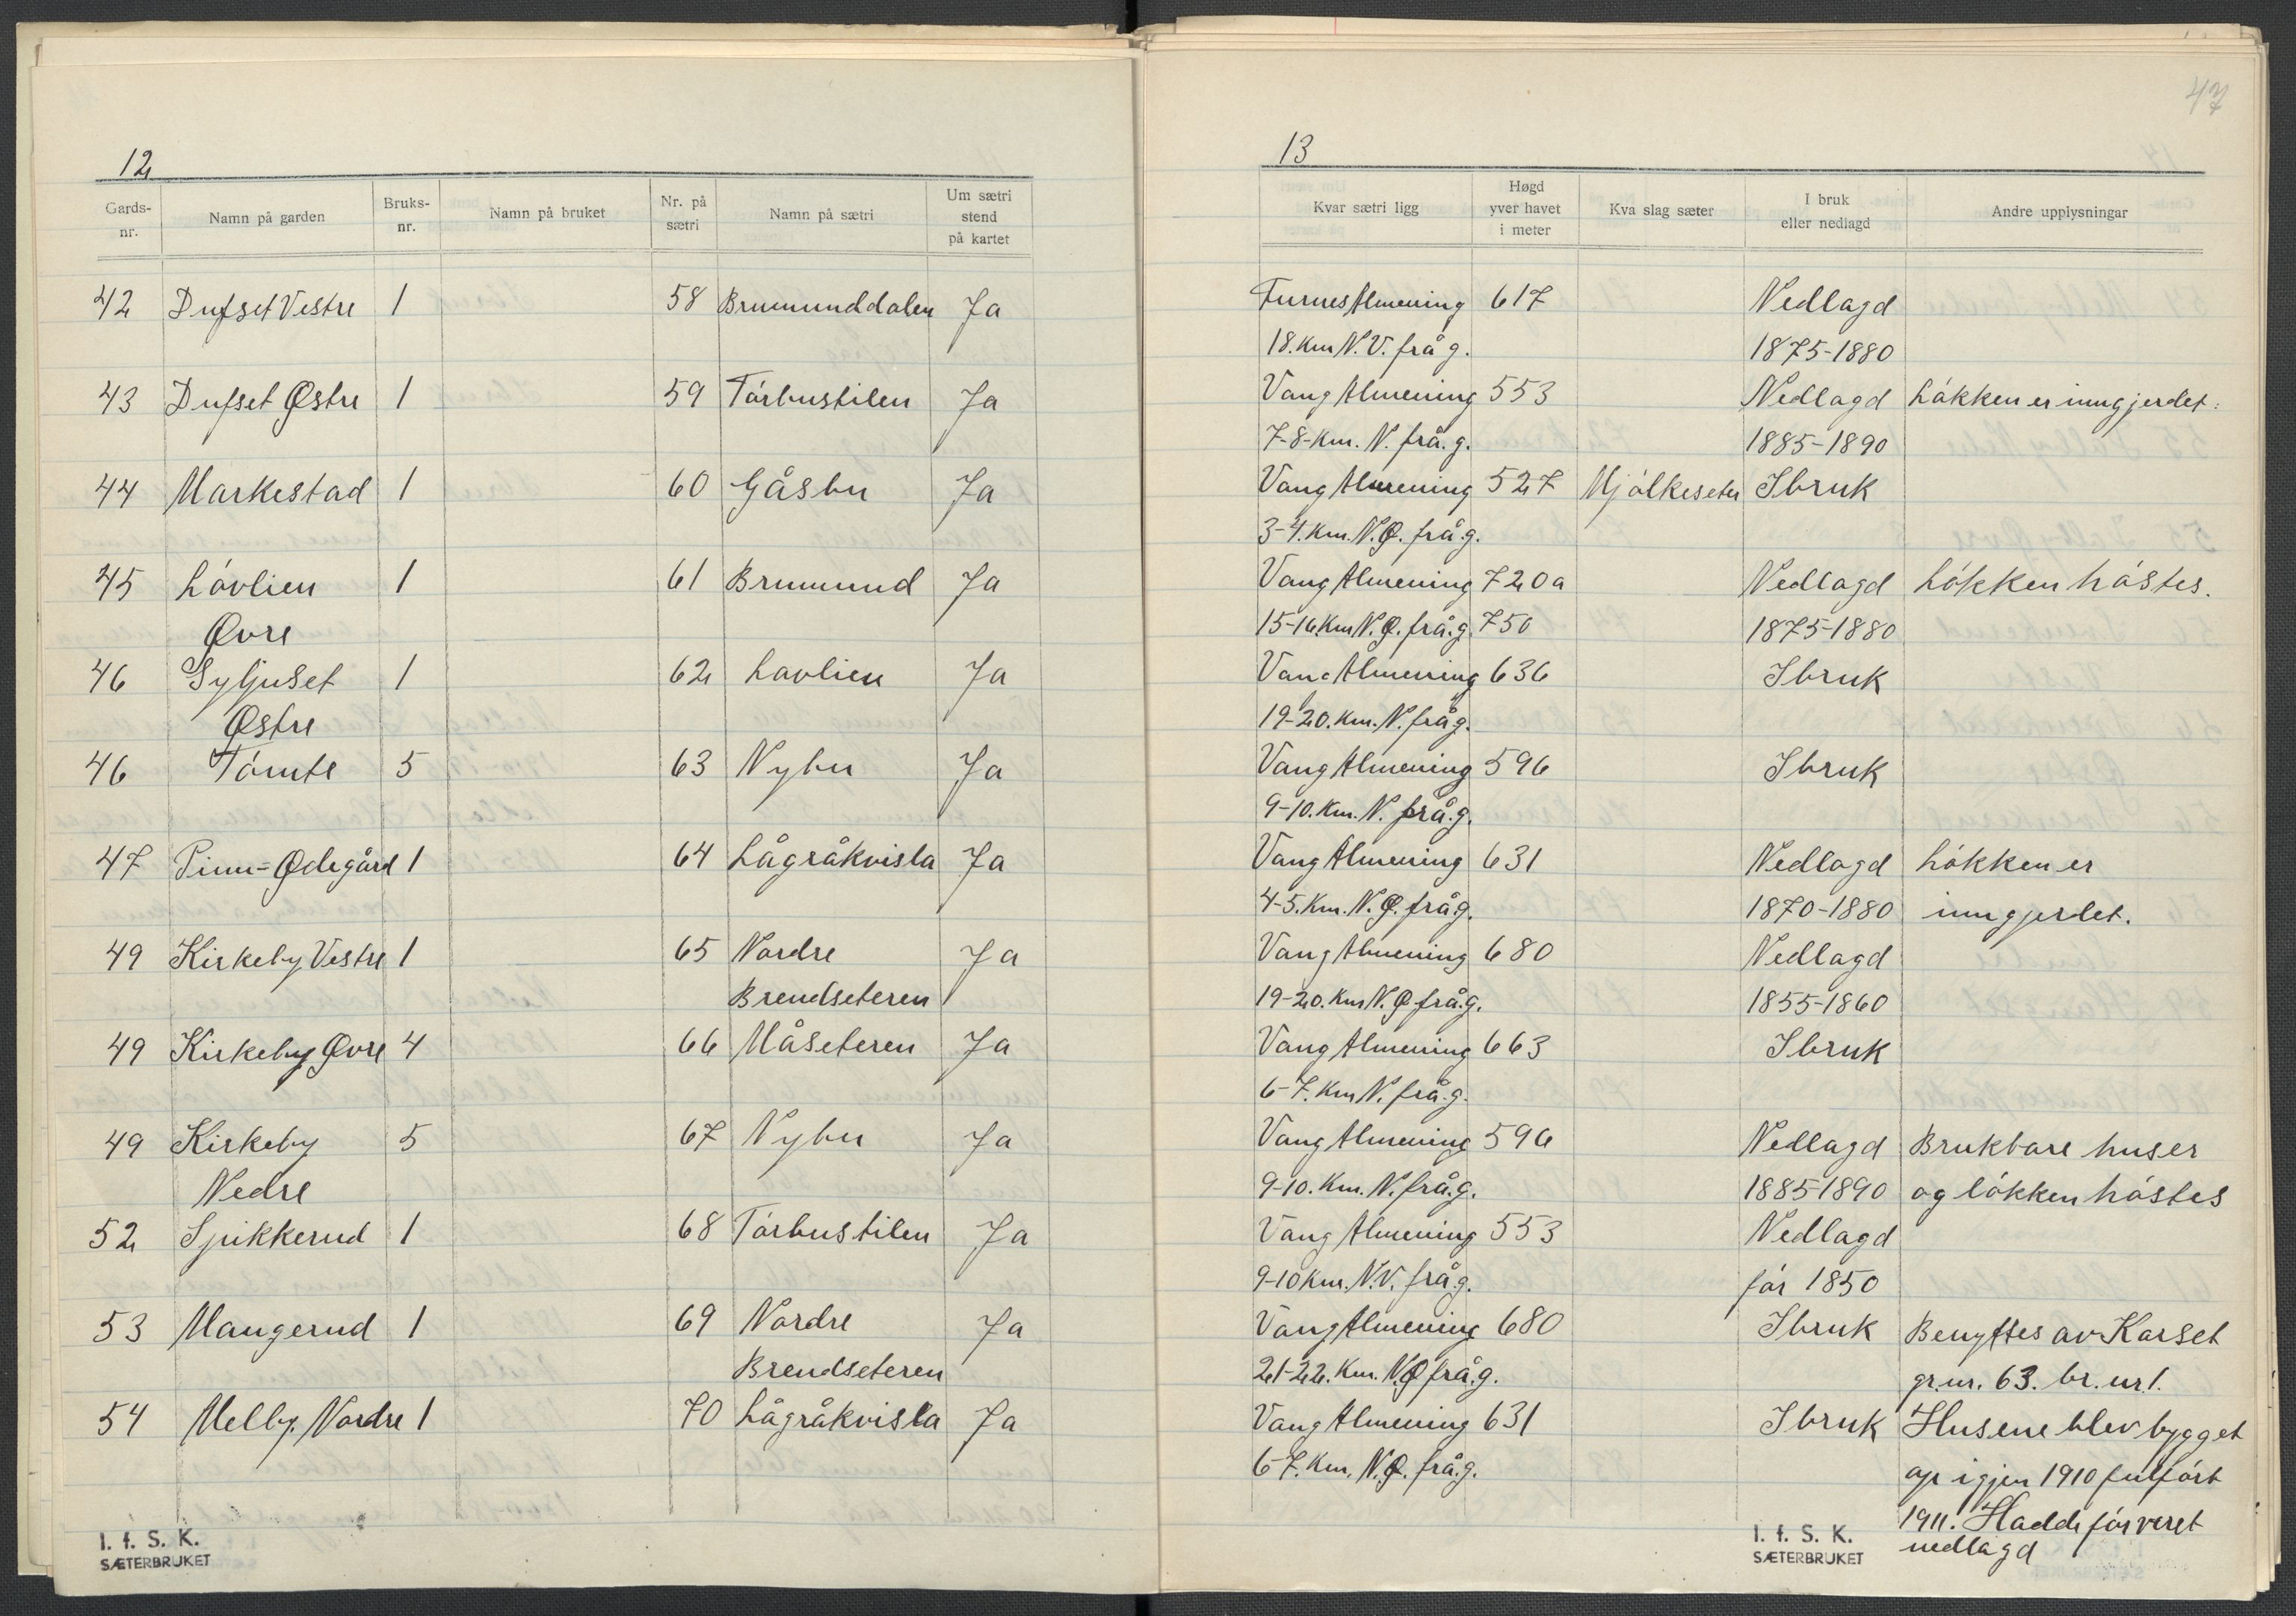 12
Gards-nr. Namn på garden Bruks-nr. Namn på bruket Nr. på sætri Namn på sætri Um sætri stend på kartet
42 Dufset Vestre 1 58 Brumunddalen Ja
43 Dufset Østre 1 59 Tórbustilen Ja
44 Markestad 1 60 Gåsbu Ja
45 Lóvlien 1 61 Brumund Ja
Øvre
46 Syljuset 1 62 Lavlien Ja
Østre
46 Tómte 5 63 Nybu Ja
47 Finn-Ødegård 1 64 Lågråkvisla Ja
49 Kirkeby Vestre 1 65 Nordre Ja
Brendseteren
49 Kirkeby Øvre 4 66 Måseteren Ja
49 Kirkeby 5 67 Nybu Ja
Nedre
52 Spikkerud 1 68 Tórbustilen Ja
53 Mangerud 1 69 Nordre Ja
Brendseteren
54 Melby. Nordre 1 70 Lågråkvisla Ja
I. f. S. K.
SÆTERBRUKET
47
13
Kvar sætri ligg Høgd yver havet i meter Kva slag sæter I bruk eller nedlagd Andre upplysningar
Furnes Almening 617 Nedlagd
18. Km N.V. frå g. 1875-1880
Vang Almening 553 Nedlagd Lókken er inngjerdet.
7-8-Km. N. frå. g. 1885-1890
Vang Almening 527 Mjólkeseter Ibruk
3-4. Km. N.Ø. frå g.
Vang Almening 720 a Nedlagd Lókken hóstes.
15-16 Km N.Ø. frå. g. 750 1875-1880
Vang Almening 636 Ibruk
19-20. Km. N. frå g.
Vang Almening 596 Ibruk
9-10. Km. N. frå. g.
Vang Almening 631 Nedlagd Lókken er
4-5. Km. N.Ø. frå g. 1870-1880 inngjerdet.
Vang Almening 680 Nedlagd
19-20. Km N.Ø frå. g. 1855-1860
Vang Almening 663 Ibruk
6-7. Km N. frå. g.
Vang Almening 596 Nedlagd Brukbare huser
9-10. Km. N. frå. g. 1885-1890 og lókken hóstes
Vang Almening 553 Nedlagd
9-10 Km. N.V. frå g. fór 1850
Vang Almening 680 Ibruk Benyttes av Karset
21-22. Km. N.Ø frå. g. gr. nr. 63. br. nr 1.
Vang Almening 631 Ibruk Husene blev bygget
6-7. Km. N.Ø. frå. g. op igjen 1910 fulfórt
1911. Hadde fór veret
nedlagd
I. f. S. K.
SÆTERBRUKET